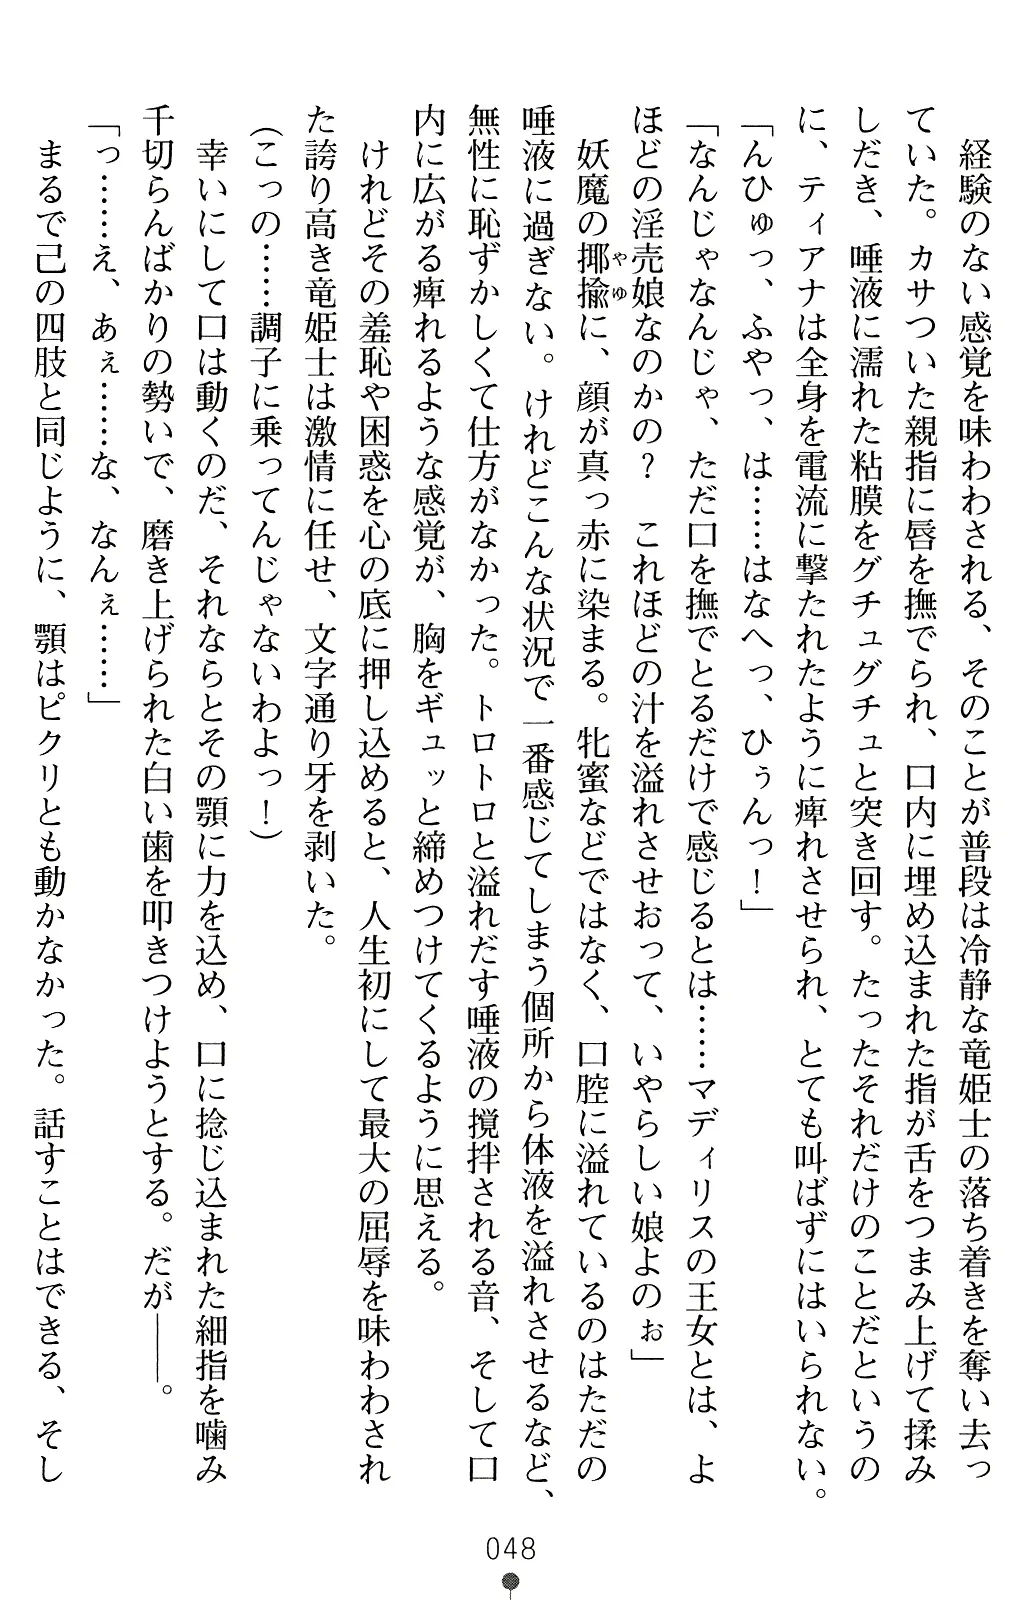 経験のない感覚を味わわされる、そのことが普段は冷静な竜姫士の落ち着きを奪い去っ
ていた。カサついた親指に唇を撫でられ、口内に埋め込まれた指が舌をつまみ上げて揉み
しだき、唾液に濡れた粘膜をグチュグチュと突き回す。たったそれだけのことだというの
に、ティアナは全身を電流に撃たれたように痺れさせられ、とても叫ばずにはいられない。
「んひゅっ、ふやっ、は……はなへっ、ひぅんっ！」
「なんじゃなんじゃ、ただ口を撫でとるだけで感じるとは……マディリスの王女とは、よ
ほどの淫売娘なのかの？　これほどの汁を溢れさせおって、いやらしい娘よのぉ」
妖魔の揶揄に、顔が真っ赤に染まる。牝蜜などではなく、口腔に溢れているのはただの
やゆ
唾液に過ぎない。けれどこんな状況で一番感じてしまう個所から体液を溢れさせるなど、
無性に恥ずかしくて仕方がなかった。トロトロと溢れだす唾液の撹拌される音、そして口
内に広がる痺れるような感覚が、胸をギュッと締めつけてくるように思える。
けれどその羞恥や困惑を心の底に押し込めると、人生初にして最大の屈辱を味わわされ
た誇り高き竜姫士は激情に任せ、文字通り牙を剥いた。
（こっの……調子に乗ってんじゃないわよっ！）
幸いにして口は動くのだ、それならとその顎に力を込め、口に捻じ込まれた細指を噛み
千切らんばかりの勢いで、磨き上げられた白い歯を叩きつけようとする。だが――。
「っ……え、あぇ……な、なんぇ……」
まるで己の四肢と同じように、顎はピクリとも動かなかった。話すことはできる、そし
048